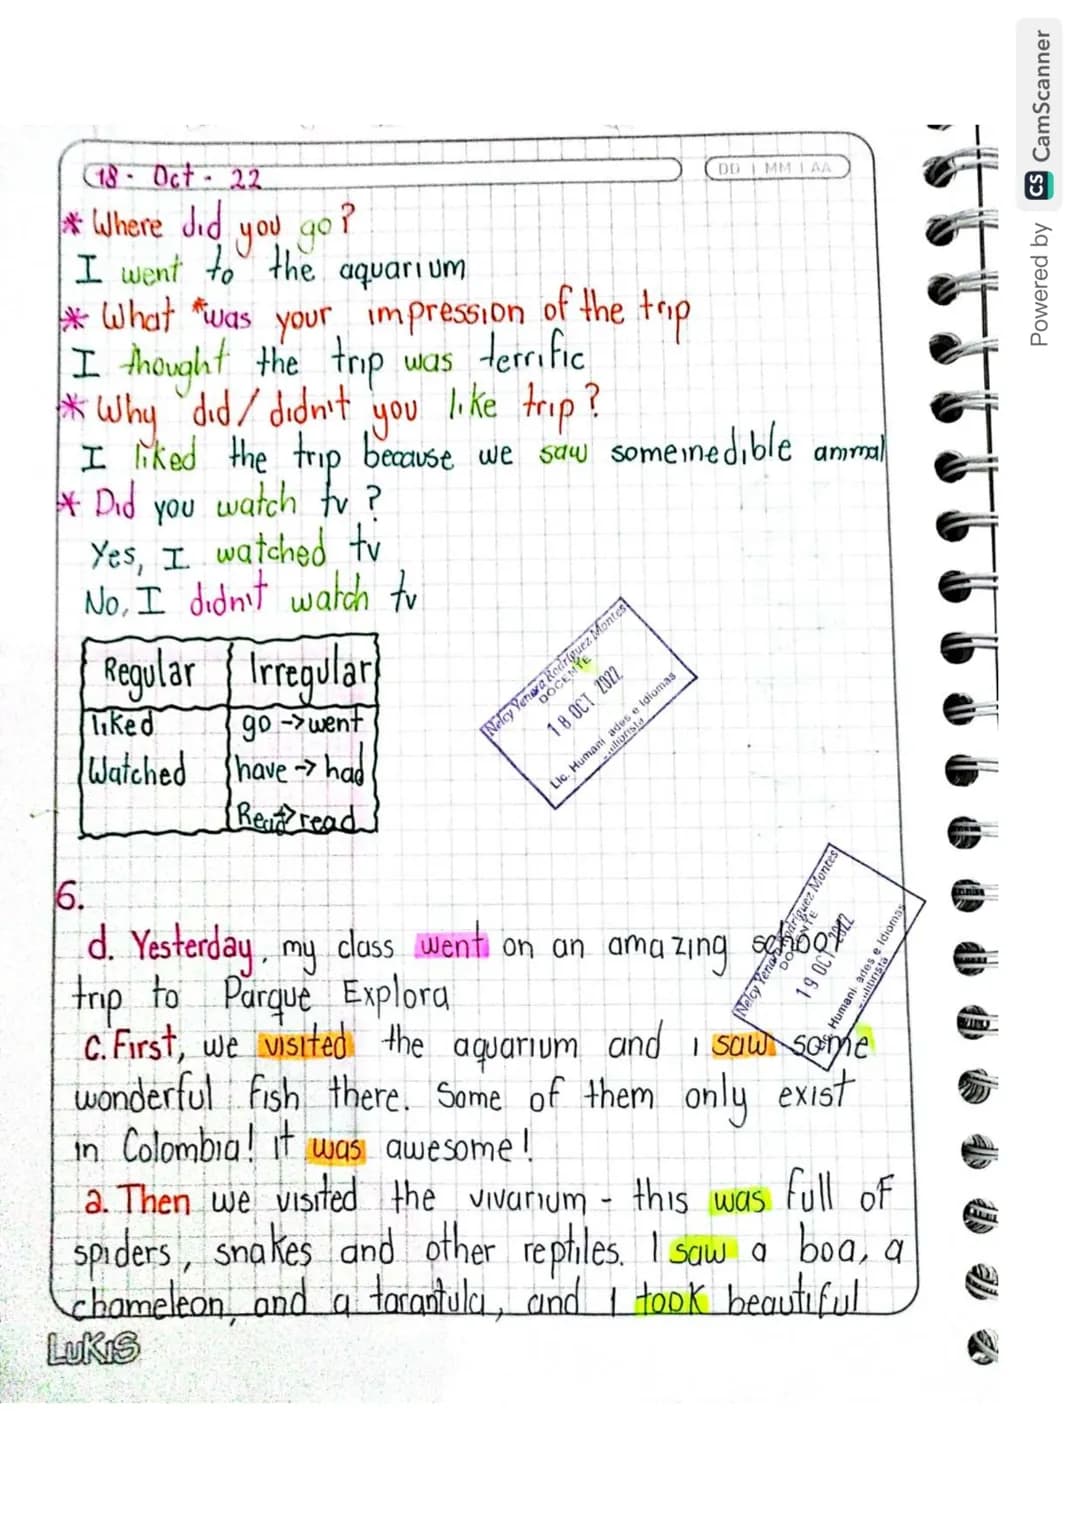 18 - Oct - 22
DD MM AA
* Where did you go?
I went to the aquarium
* What *was your impression of the trip
I thought the trip was terrific
* Why did/didn't you like trip?
I liked the trip because we saw some inedible animal
* Did you watch tv?
Yes, I watched tv
No, I didn't watch tv
Regular Irregular
liked go -> went
Watched have -> had
Read -> read
Nelcy Yenora Rodríguez Montes
DOCENTE
18 OCT 2022
Lic. Humani ades e Idiomas
6.
d. Yesterday, my class went on an amazing school
trip to Parque Explora
Rodríguez Montes
DOCENTE
19 OCT 2022
Humani ades e Idiomas
c. First, we visited the aquarium and i saw some
wonderful fish there. Some of them only exist
in Colombia! it was awesome!
a. Then we visited the vivarium - this was full of
spiders, snakes and other reptiles. I saw a boa, a
chameleon, and a tarantula, and i took beautiful
LUKIS
Powered by CS CamScanner